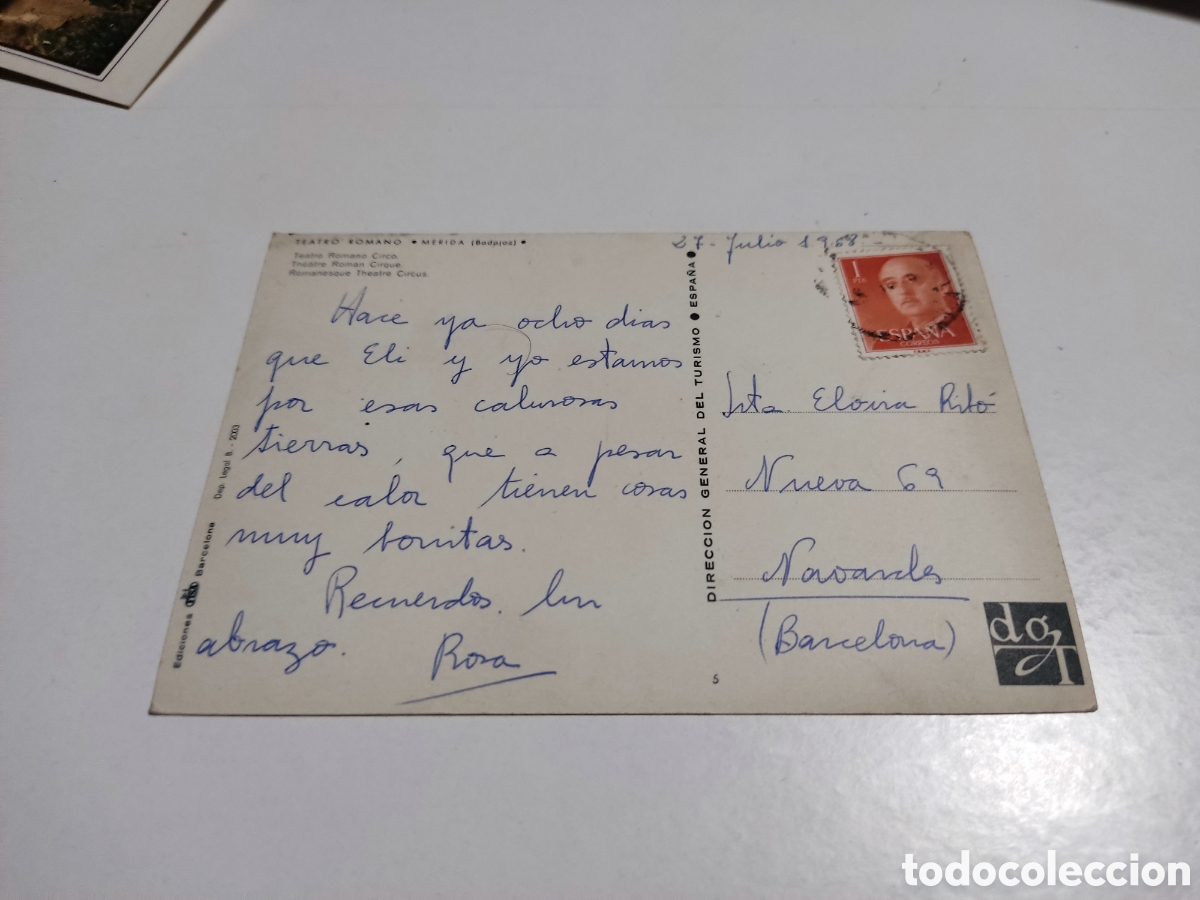 TEATRO ROMANO • MERIDA (Badajoz) •
Teatro Romano Circo.
Théatre Roman Cirque.
Romanesque Theatre Circus.
27 - Julio 1968
Hace ya ocho dias
que Eli y yo estamos
por esas calurosas
tierras, que a pesar
del calor tienen cosas
muy bonitas.
Recuerdos. Un
abrazo. Rosa
Ediciones Barcelona Dep. Legal B. - 2003
DIRECCION GENERAL DEL TURISMO • ESPAÑA •
1
PTA
ESPAÑA
CORREOS
Srta. Elvira Pitó
Nueva 69
Navarcles
(Barcelona)
5
dgT
todocoleccion